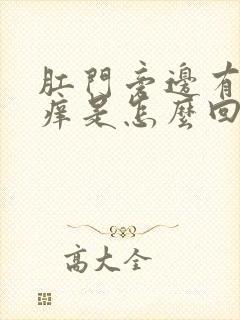 肛門旁邊有
痒是怎麼回
高大全